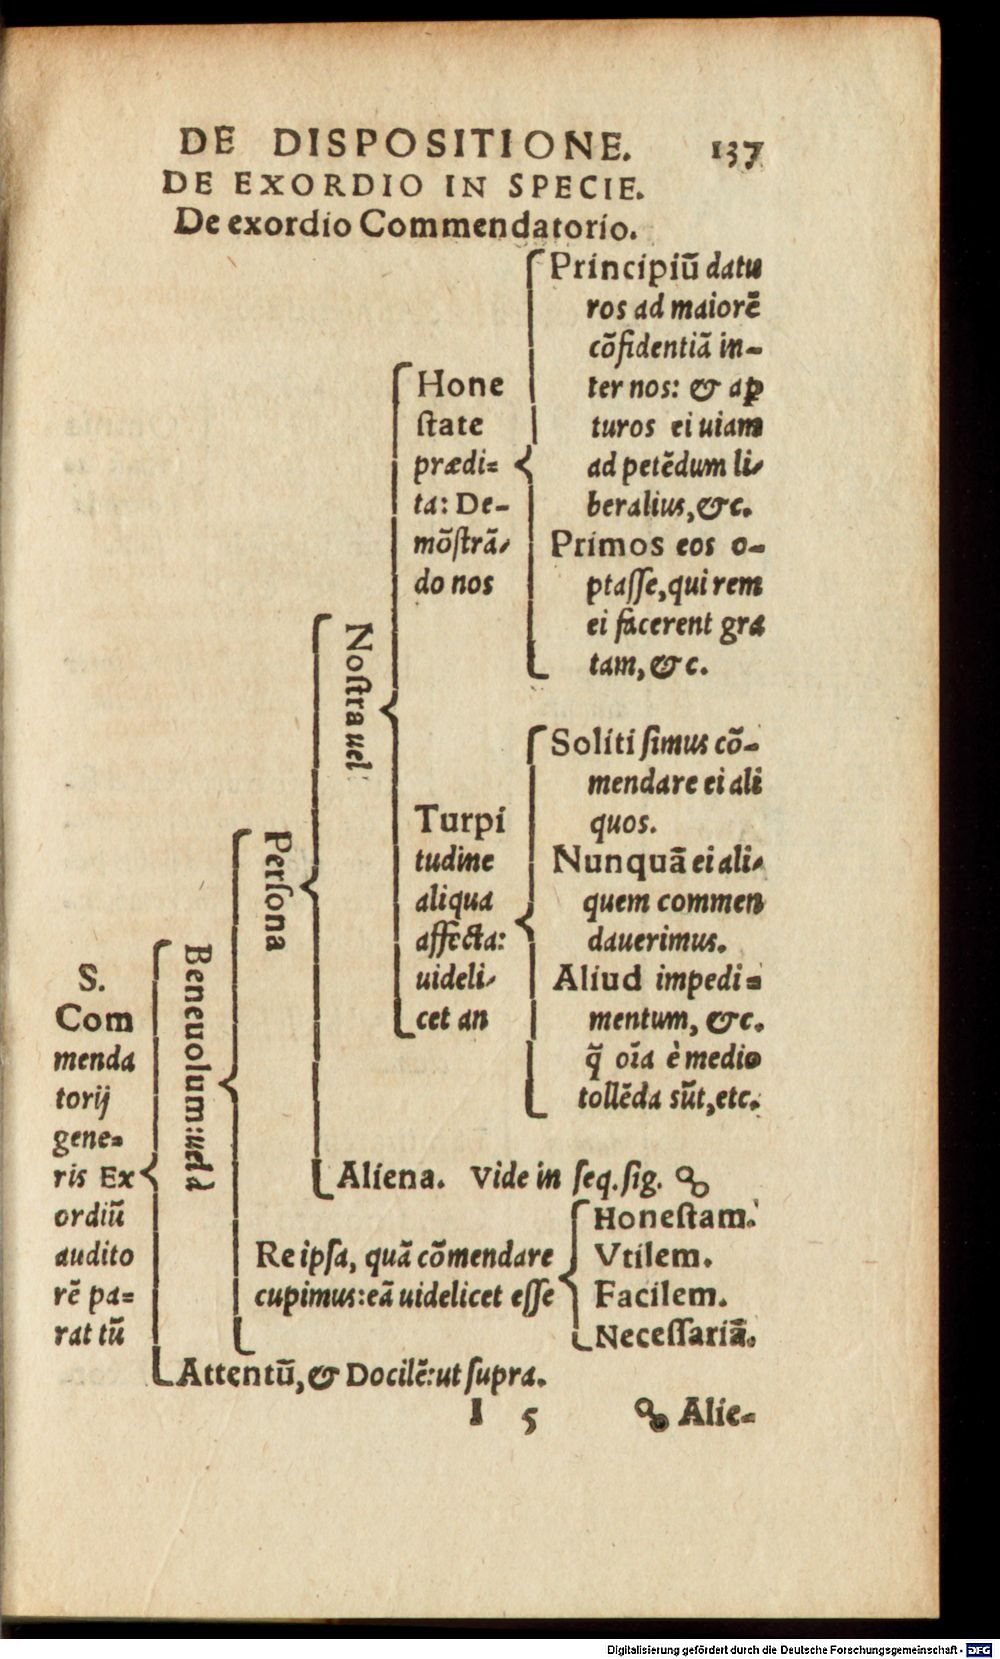 DE DISPOSITIONE. 137
DE EXORDIO IN SPECIE.
De exordio Commendatorio.
S.
Com
menda
torij
gene=
ris Ex
ordiū
audito
rē pa=
rat tū
Beneuolum: uel à
Persona
Nostra uel
Hone
state
prædi=
ta: De-
mōstrā-
do nos
Principiū datu
ros ad maiorē
cōfidentiā in-
ter nos: & ap
turos ei uiam
ad petēdum li-
beralius, &c.
Primos eos o-
ptasse, qui rem
ei facerent gra
tam, &c.
Turpi
tudine
aliqua
affecta:
uideli-
cet an
Soliti simus cō-
mendare ei ali
quos.
Nunquā ei ali-
quem commen
dauerimus.
Aliud impedi=
mentum, &c.
q̄ oīa è medio
tollēda sūt, etc.
Aliena. Vide in seq. sig.
Re ipsa, quā cōmendare
cupimus: eā uidelicet esse
Honestam.
Vtilem.
Facilem.
Necessariā.
Attentū, & Docilē: ut supra.
I 5 Alie=
Digitalisierung gefördert durch die Deutsche Forschungsgemeinschaft - DFG